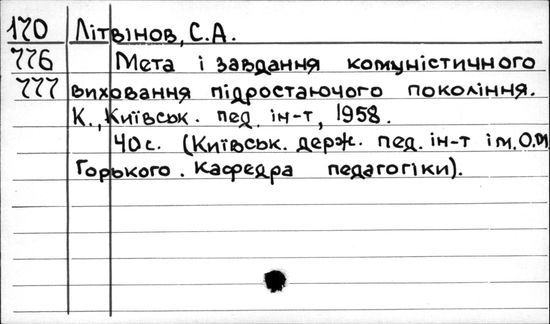 170 Літвінов, С.А.
776 Мета і завдання комуністичного
777 виховання підростаючого покоління.
К., Київськ. пед. ін-т, 1958.
40с. (Київськ. держ. пед. ін-т ім. О.М
Горького. Кафедра педагогіки).